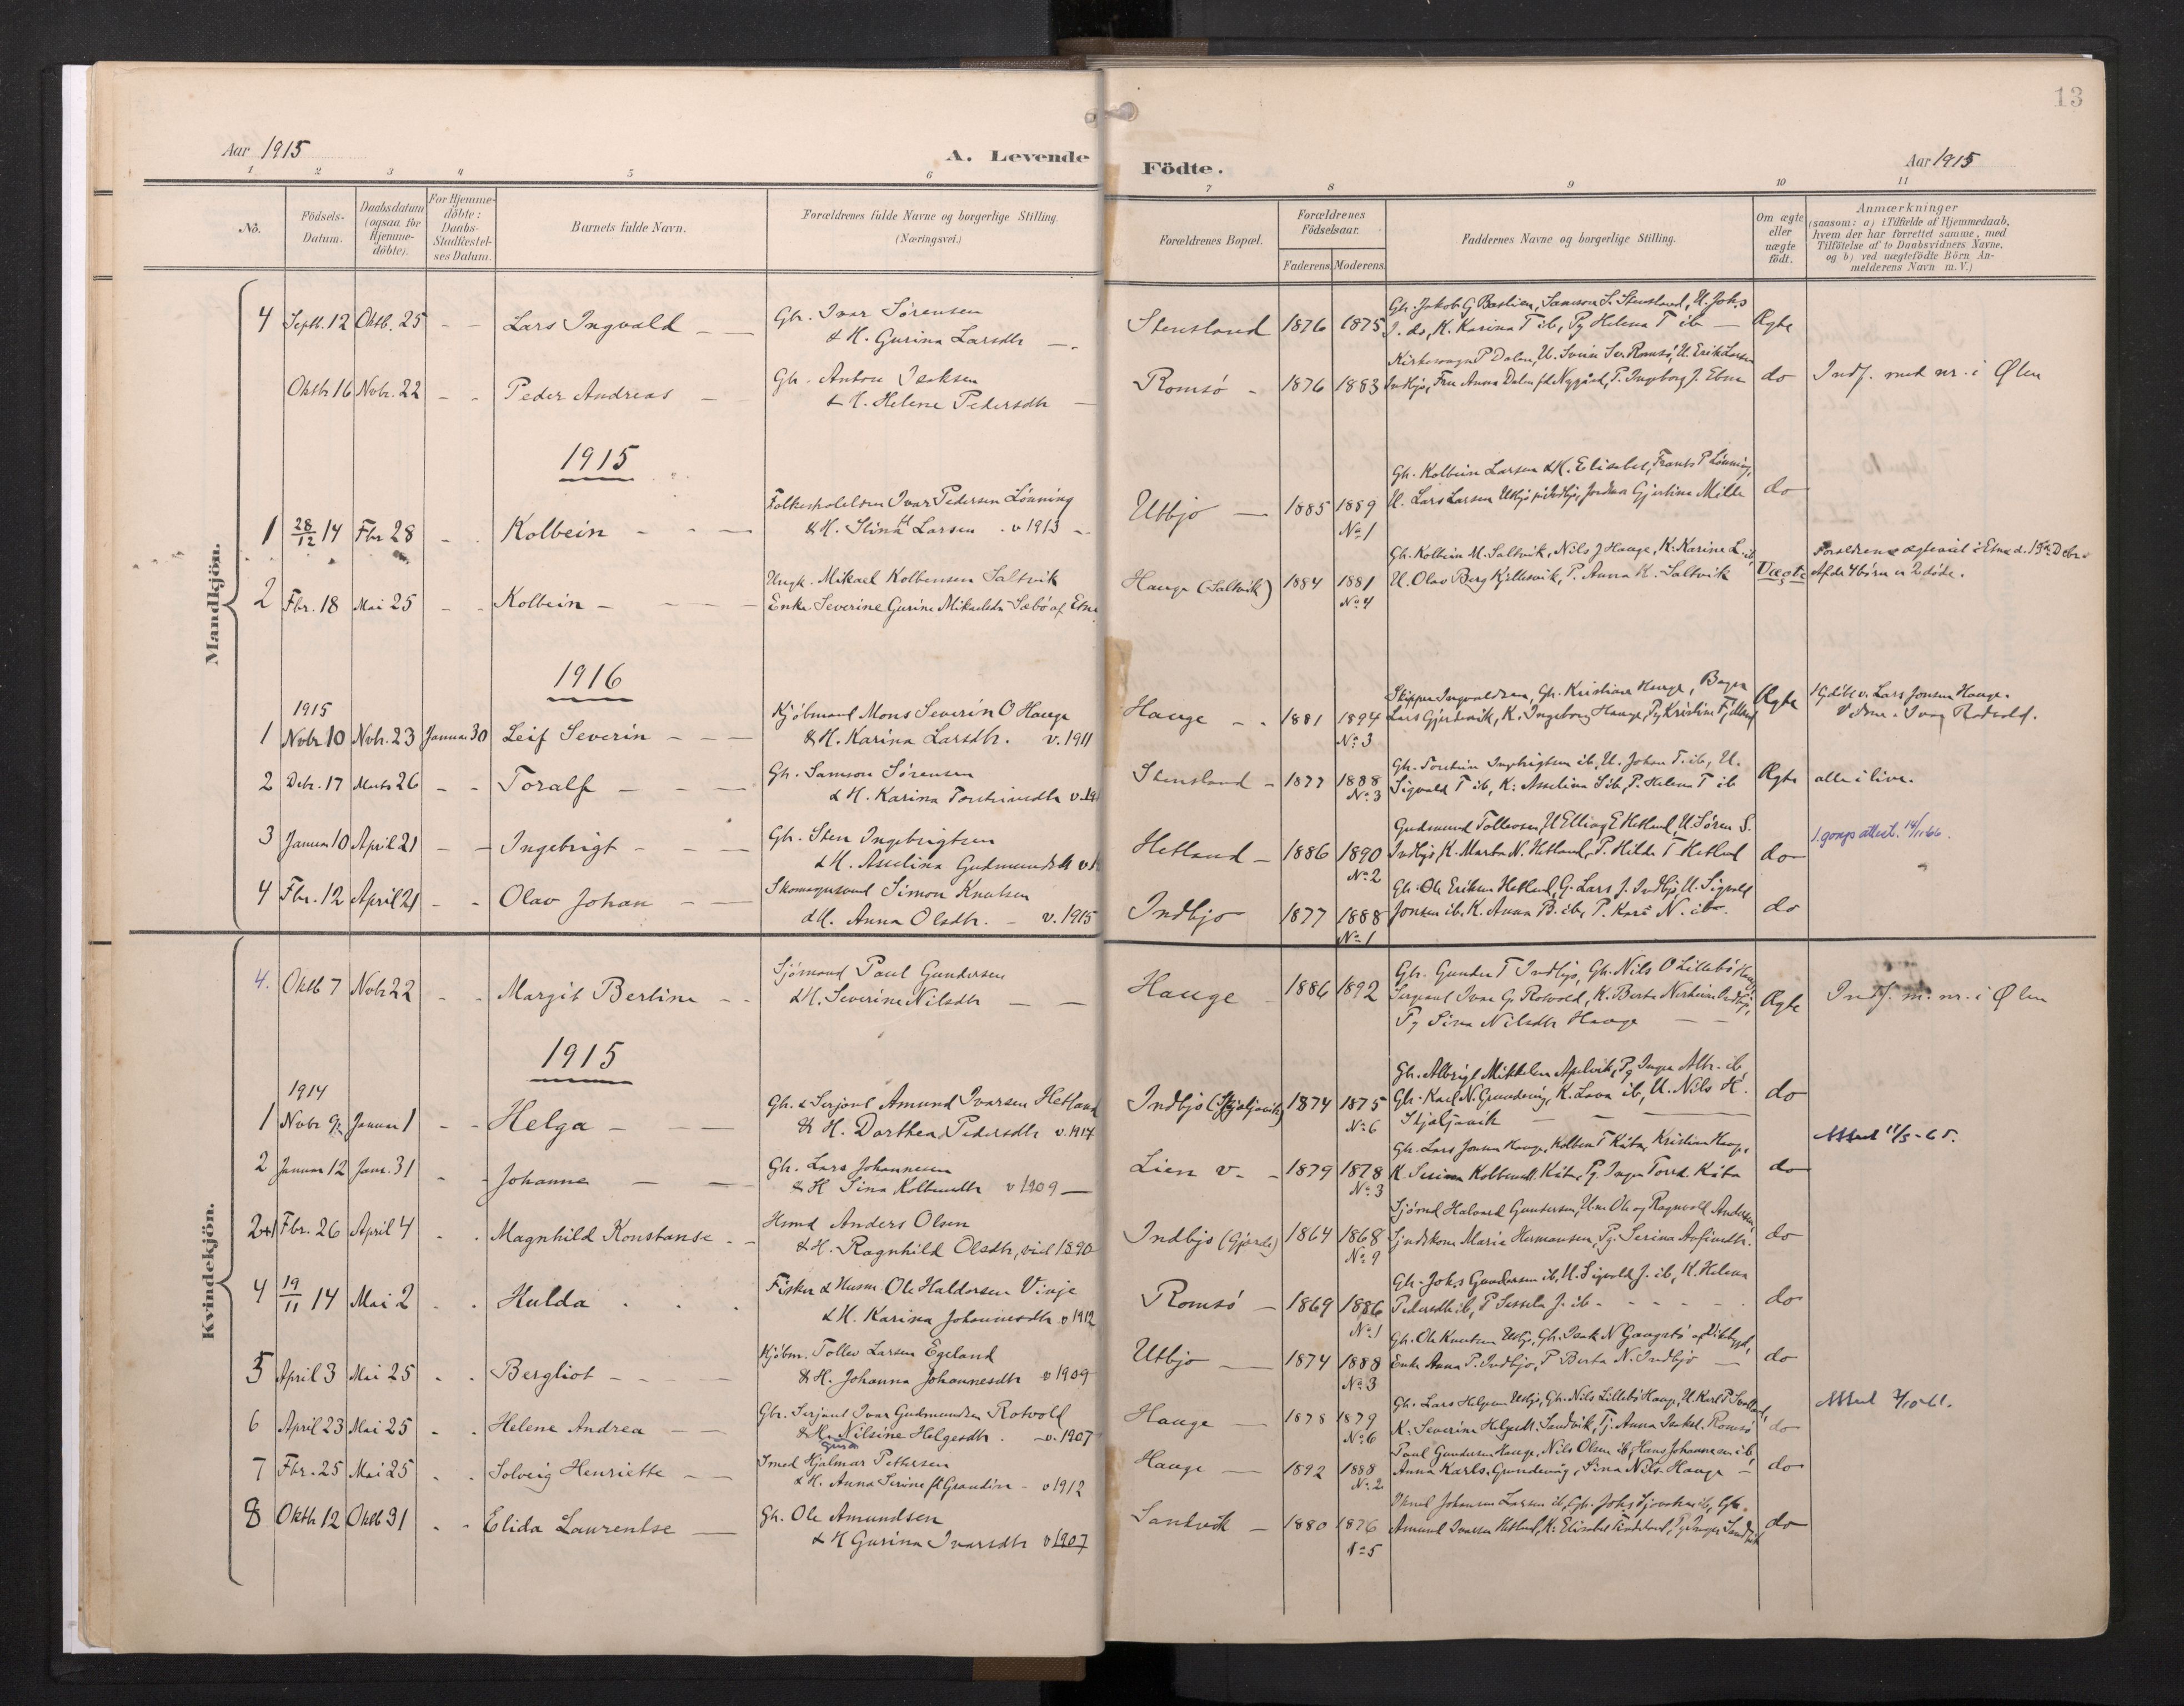 13
Aar 1915
A. Levende
Födte.
Aar 1915
1 2 3 4 5 6 7 8 9 10 11
No.
Födsels-Datum.
Daabsdatum (ogsaa for Hjemme-döbte).
For Hjemme-döbte: Daabs-Stadfæstel-ses Datum.
Barnets fulde Navn.
Forældrenes fulde Navne og borgerlige Stilling.
(Næringsvei.)
Forældrenes Bopæl.
Forældrenes Födselsaar.
Faderens. Moderens.
Faddernes Navne og borgerlige Stilling.
Om ægte eller uægte født.
Anmærkninger
(saasom: a) i Tilfælde af Hjemmedaab,
hvem der har forrettet samme, med
Tilföielse af to Daabsvidners Navne,
og b) ved uægtefödte Börn An-
melderens Navn m. V.)
Mandkjön.
4 Septb. 12 Oktb. 25 - - Lars Ingvald - Gbr. Ivar Sørensen
& H. Gurina Larsdtr
Stensland 1876 1875
Gbr. Jakob G Bastlien, Samson S. Stensland, U. Johs
J. do, K. Karina T ib, Pg Helena T ib - Ægte
Oktbr 16 Novbr. 22 - - Peder Andreas - Gbr. Anton Isaksen
& H. Helene Pedersdtr
Romsø - 1876 1883
Indbjo, Fru Anna Dalen fd. Nygård, P. Ingeborg J. Ebne do Indf. med nr. i Ølen
1915
1 28/12 14 Fbr 28 - - Kolbein - - - Ivar Pedersen Lönning
& H. Stina Larsen v 1913
Utbjo 1885 1889
No. 1
Gbr. Kolbein Larsen & H. Elisabet, Frants P Lönning,
U. Lars Larsen Utbjo, Gjertine Milde do
2 Fbr. 18 Mai 25 - - Kolbein - - - Ungk. Mikael Kolbensen Saltvik
Enke Severine Gurine Mikaelsdtr Sæbö af Etne
Hauge (Saltvik) 1884 1881
No. 4
Gbr. Kolbein M. Saltvik, Nils J Hauge, K. Karine L. ib
U. Olav Berg Kyllesvik, P. Anna K. Saltvik Uægte
Af de 4 börn er 2 döde.
1916
1915
1 Novbr 10 Novb. 23 Januar 30 Leif Severin - - Kjöbmand Mons Severin O Hauge
& H. Karina Larsdtr. v. 1911
Hauge - 1881 1894
No. 3
Skipper Ingvaldsen, Gbr. Kristian Hauge, Bager
Lars Gjertsvik, K. Ingeborg Hauge, Pg Kristine Fjelland Ægte
Hjdöbt v. Lars Jonsen Hauge.
2 Debr. 17 Marts 26 - - Toralf - - Gbr. Samson Sörensen
& H. Karina
Stensland - 1877 1888
No. 3
Sigvald T ib, K. Asselina S ib, P. Helena T ib Ægte alle i live.
3 Januar 10 April 21 - - Ingebrigt - - Gbr. Sten Ingebrigtsen
& H. Asselina Gudmundsdtr
Hetland - 1886 1890
No. 2
Gudmund Tollevsen, U Elling E Hetland, U. Søren S.
Indbjo, K. Marta N. Hetland, P. Hilda T Hetland do
1. gangs attest. 14/11 66.
4 Fbr. 12 April 21 - - Olav Johan - - Skomagersvend Simon Knutsen
& H. Anna Olsdtr. - v. 1915
Indbjo 1877 1888
No. 1
Gbr. Ole Eriksen Hetland, G. Lars J. Indbjo, U. Sigvald
Jonsen ib, K. Anna B. ib, P. Kari N. ib. do
Kvindekjön.
4. Oktb 7 Novb 22 - - Margit Bertine - - Sjömand Paul Gundersen
& H. Severine Nilsdtr
Hauge 1886 1892
Gbr. Gunder T Indbjo, Gbr. Nils O Lillebö Hauge,
Sergeant Ivar G. Rotvold, K. Berta Indbjo,
Pg Sina Nilsdtr Hauge Ægte
Indf. m. nr. i Ølen
1915
1914
1 Novbr 9 Januar 1 - - Helga - - Gbr. & Serjant Amund Ivarsen Hetland
& H. Dorthea Pedersdtr v. 1914
Indbjo (Skjaljavik) 1874 1875
No. 6
Gbr. Albrigt Mikkelsen Apelvik, Pg Inger Albr. ib,
Gbr. Karl N. Grundevåg, K. Lava ib, U. Nils H.
Skjaljavik do
2 Januar 12 Janr. 31 - - Johanne - - Gbr. Lars Johannesen
& H Sina Kolbensdtr v 1909
Lien v. - 1879 1878
No. 3
Gbr. Lars Jonsen Hauge, Kolben T Kåte, Kristian Hauge,
K Serina Kolbensdtr. Kåte, Pg. Inger Tord. Kåte do
Attest 11/5-65.
2+1 Fbr. 26 April 4 - - Magnhild Konstanse - - Hsmd Anders Olsen
& H. Ragnhild Olsdtr, viet 1890
Indbjo (Gjerde) 1864 1868
No. 9
Sjömd Halvard Gundersen, U.m. Ole og Ragnvald Andersen,
Maria Hermansen, Pg. Serina do
4 19/11 14 Mai 2 - - Hulda - - Fisker & Husm. Ole Haldorsen Vinje
& H. Karina Johannesdtr v 1912
Romsö - 1869 1886
No. 1
Gbr. Johs Gundersen ib, U. Sigvald J. ib, K. Helena
Pedersdtr ib, P Sessela J. ib - - - do
5 April 3 Mai 25 - - Bergliot - - Kjöbm. Tollev Larsen Egeland
& H. Johanna Johannesdtr v 1909
Utbjo 1874 1888
No. 3
Gbr. Ole Knutsen Utbjo, Gbr. Isak N
Enke Anna P. Indbjo, P Berta N. Indbjo do
6 April 23 Mai 25 - - Helene Andrea - - Gbr. Serjant Ivar Gudmundsen Rotvold
& H. Nilsine Helgesdtr. v. 1907
Hauge 1878 1879
No. 6
Gbr. Lars Helgesen Utbjo, Gbr. Nils Lillebö Hauge,
K. Severine Helgesdtr. Sandvik, Tj. Anna Romsö do
7 Fbr. 25 Mai 25 - - Solveig Henriette - - Smed Hjalmar Pettersen
& H. Anna Serine fd Grandin v 1912
Hauge 1892 1888
No. 2
Paul Gundersen Hauge, Nils Olsen ib, Hans Johannesen ib,
Anna Karls. Grundevåg, Sina Nils. Hauge - do
8 Oktb 12 Oktb 31 - - Elida Laurentse - Gbr. Ole Amundsen
& H Gurina Ivarsdtr v 1907
Sandvik - 1880 1876
No 5
Amund Ivarsen Hetland, K. Elisabet do